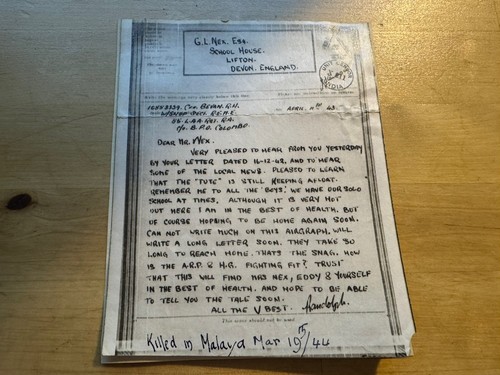 G.L. NEX, ESQ.
SCHOOL HOUSE.
LIFTON.
DEVON, ENGLAND.
BEVAN. R.H.
R.E.M.E.
L.A.A. REGT. R.A. APRIL. 43.
C/O. B.P.O. COLOMBO.
DEAR MR. NEX.
VERY PLEASED TO HEAR FROM YOU YESTERDAY
BY YOUR LETTER DATED 16-12-42, AND TO HEAR
SOME OF THE LOCAL NEWS. PLEASED TO LEARN
THAT THE "TUTE" IS STILL KEEPING AFLOAT.
REMEMBER ME TO ALL THE 'BOYS'. WE HAVE OUR SOLO
SCHOOL AT TIMES. ALTHOUGH IT IS VERY HOT
OUT HERE I AM IN THE BEST OF HEALTH, BUT
OF COURSE HOPING TO BE HOME AGAIN SOON.
CAN NOT WRITE MUCH ON THIS AIRGRAPH, WILL
WRITE A LONG LETTER SOON. THEY TAKE SO
LONG TO REACH HOME. THATS THE SNAG. HOW
IS THE A.R.P. & H.G. FIGHTING FIT? TRUST
THAT THIS WILL FIND MRS NEX, EDDY & YOURSELF
IN THE BEST OF HEALTH, AND HOPE TO BE ABLE
TO TELL YOU THE TALE SOON.
ALL THE V BEST. Randolph.
This space should not be used
Killed in Malaya Mar 19th/44